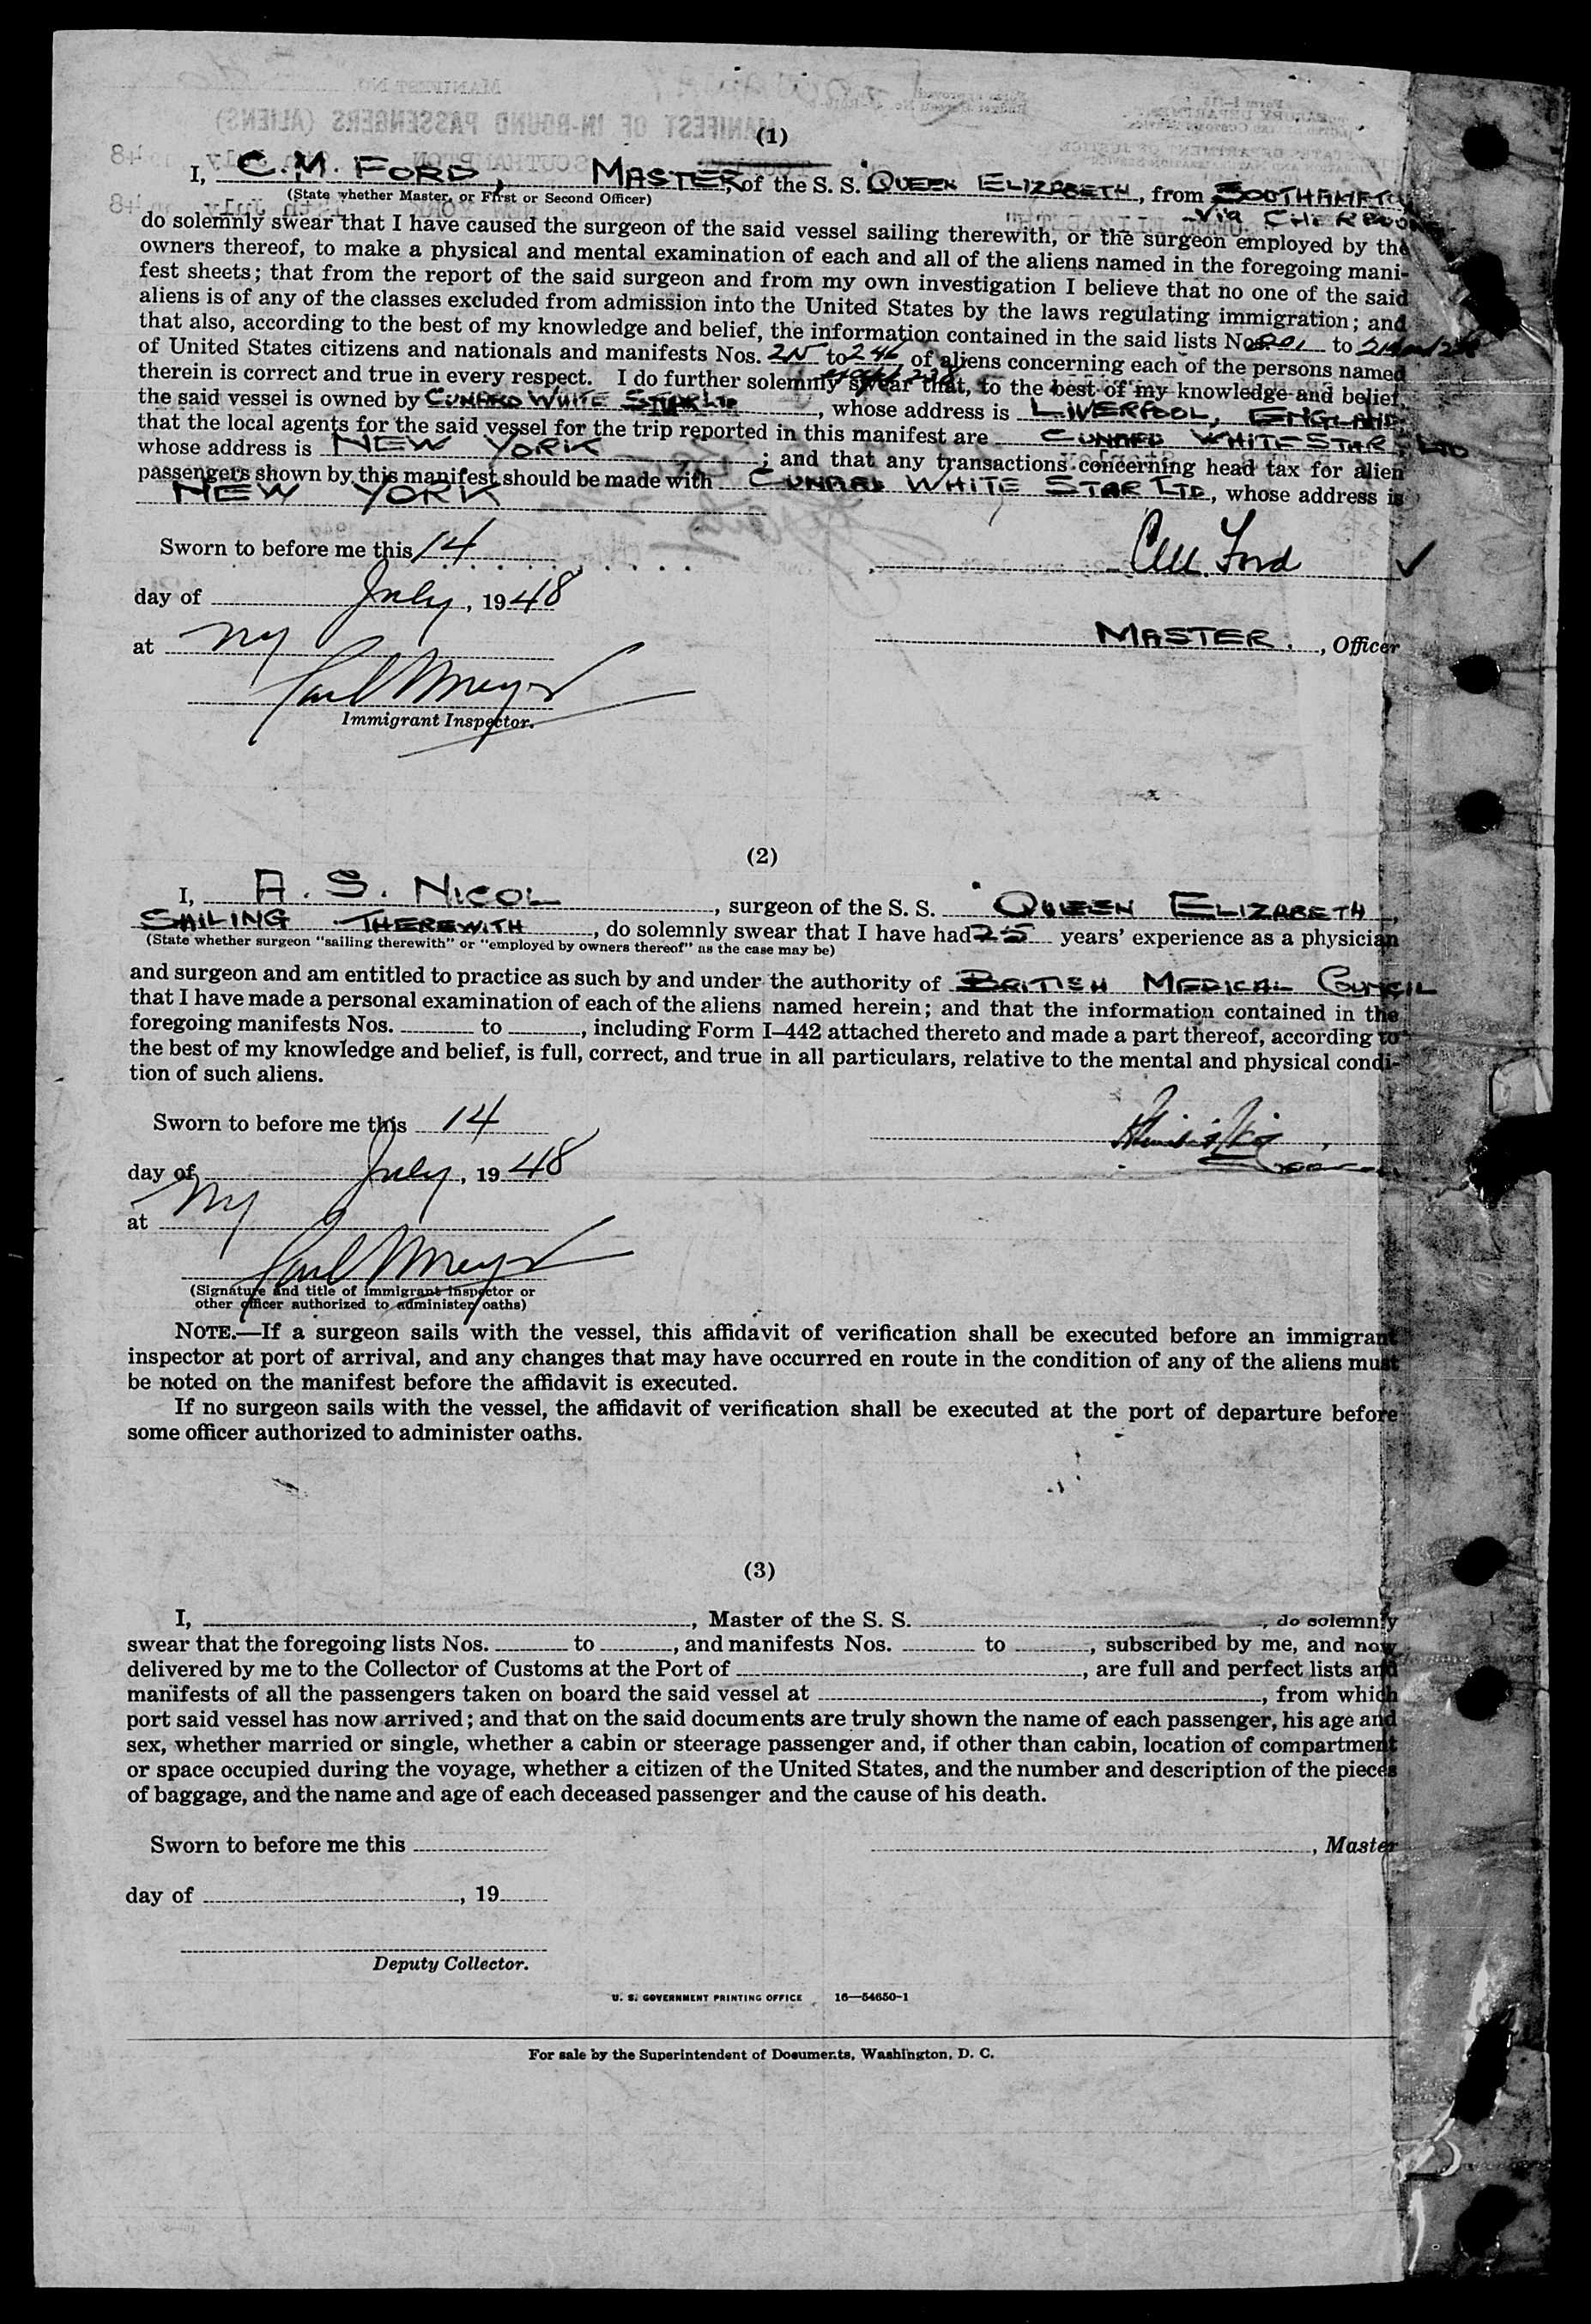 (1)
I, C. M. FORD, MASTER of the S. S. QUEEN ELIZABETH, from SOUTHAMPTON
(State whether Master, or First or Second Officer)
via CHERBOURG
do solemnly swear that I have caused the surgeon of the said vessel sailing therewith, or the surgeon employed by the
owners thereof, to make a physical and mental examination of each and all of the aliens named in the foregoing mani-
fest sheets; that from the report of the said surgeon and from my own investigation I believe that no one of the said
aliens is of any of the classes excluded from admission into the United States by the laws regulating immigration; and
that also, according to the best of my knowledge and belief, the information contained in the said lists Nos. 201 to
of United States citizens and nationals and manifests Nos. to 246 of aliens concerning each of the persons named
therein is correct and true in every respect. I do further solemnly swear that, to the best of my knowledge and belief,
the said vessel is owned by CUNARD WHITE STAR LTD, whose address is LIVERPOOL, ENGLAND;
that the local agents for the said vessel for the trip reported in this manifest are CUNARD WHITE STAR, LTD
whose address is NEW YORK; and that any transactions concerning head tax for alien
passengers shown by this manifest should be made with CUNARD WHITE STAR LTD., whose address is
NEW YORK
Sworn to before me this 14
C.M. Ford ✓
day of July, 1948
at NY
MASTER., Officer
Paul Meyer
Immigrant Inspector.
(2)
I, A. S. NICOL, surgeon of the S. S. QUEEN ELIZABETH,
SAILING THEREWITH, do solemnly swear that I have had 25 years' experience as a physician
(State whether surgeon "sailing therewith" or "employed by owners thereof" as the case may be)
and surgeon and am entitled to practice as such by and under the authority of BRITISH MEDICAL COUNCIL
that I have made a personal examination of each of the aliens named herein; and that the information contained in the
foregoing manifests Nos. to , including Form I–442 attached thereto and made a part thereof, according to
the best of my knowledge and belief, is full, correct, and true in all particulars, relative to the mental and physical condi-
tion of such aliens.
Sworn to before me this 14
day of July, 1948
at NY
Paul Meyer
(Signature and title of immigrant inspector or
other officer authorized to administer oaths)
NOTE.—If a surgeon sails with the vessel, this affidavit of verification shall be executed before an immigrant
inspector at port of arrival, and any changes that may have occurred en route in the condition of any of the aliens must
be noted on the manifest before the affidavit is executed.
If no surgeon sails with the vessel, the affidavit of verification shall be executed at the port of departure before
some officer authorized to administer oaths.
(3)
I, , Master of the S. S. , do solemnly
swear that the foregoing lists Nos. to , and manifests Nos. to , subscribed by me, and now
delivered by me to the Collector of Customs at the Port of , are full and perfect lists and
manifests of all the passengers taken on board the said vessel at , from which
port said vessel has now arrived; and that on the said documents are truly shown the name of each passenger, his age and
sex, whether married or single, whether a cabin or steerage passenger and, if other than cabin, location of compartment
or space occupied during the voyage, whether a citizen of the United States, and the number and description of the pieces
of baggage, and the name and age of each deceased passenger and the cause of his death.
Sworn to before me this
, Master
day of , 19
Deputy Collector.
U. S. GOVERNMENT PRINTING OFFICE 16—54650-1
For sale by the Superintendent of Documents, Washington, D. C.